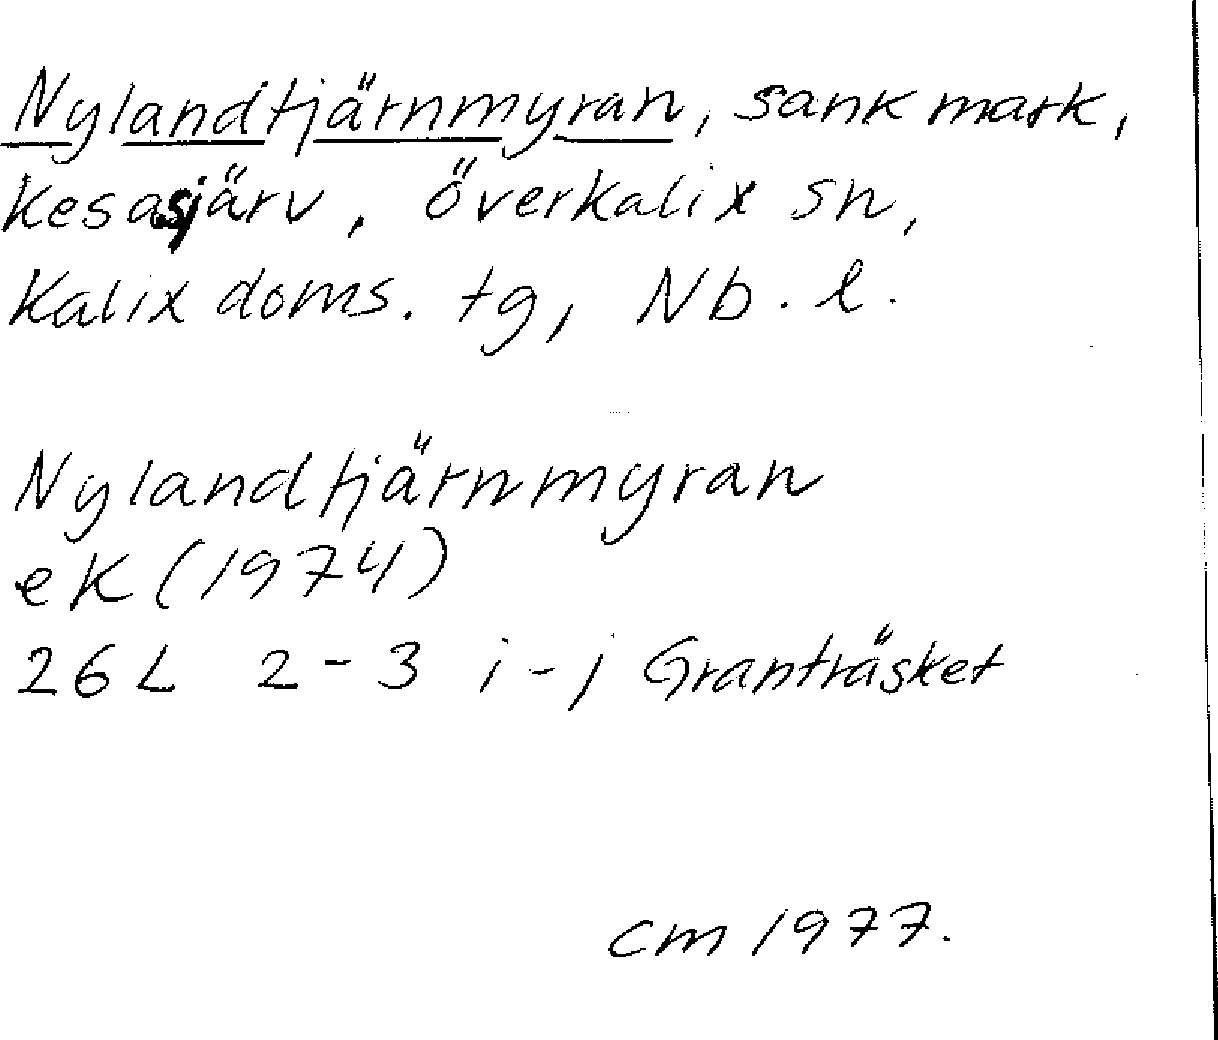 Nylandtjärnmyran, sank mark,
Kesasjärv, överkalix sn,
Kalix doms. tg, Nb. l.
Nylandtjärnmyran
ek (1974)
26 L 2-3 i-j Granträsket
cm 1977.